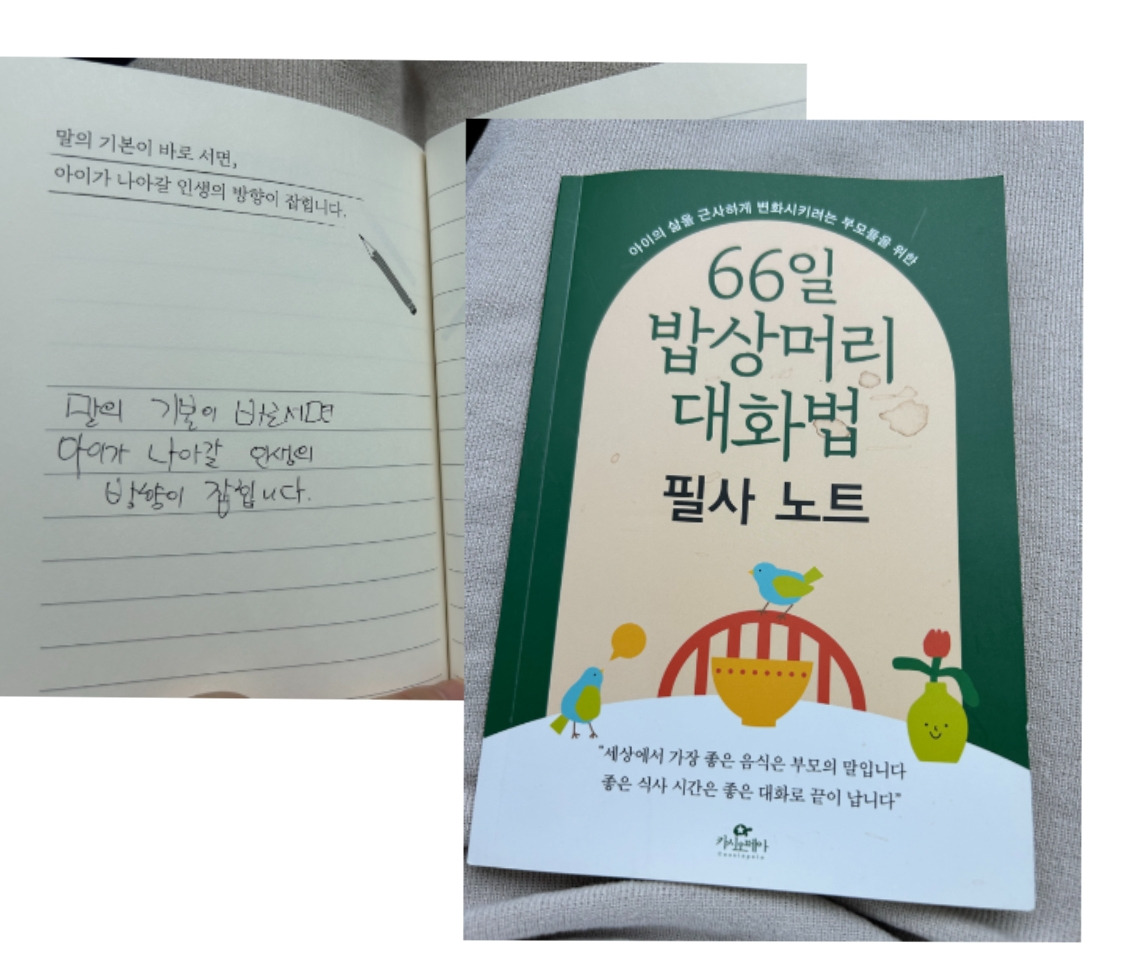 말의 기본이 바로 서면,
아이가 나아갈 인생의 방향이 잡힙니다.
말의 기본이 바로서면
아이가 나아갈 인생의
방향이 잡힙니다.
아이의 삶을 근사하게 변화시키려는 부모들을 위한
66일
밥상머리
대화법
필사 노트
"세상에서 가장 좋은 음식은 부모의 말입니다
좋은 식사 시간은 좋은 대화로 끝이 납니다"
카시오페아
Cassiopeia